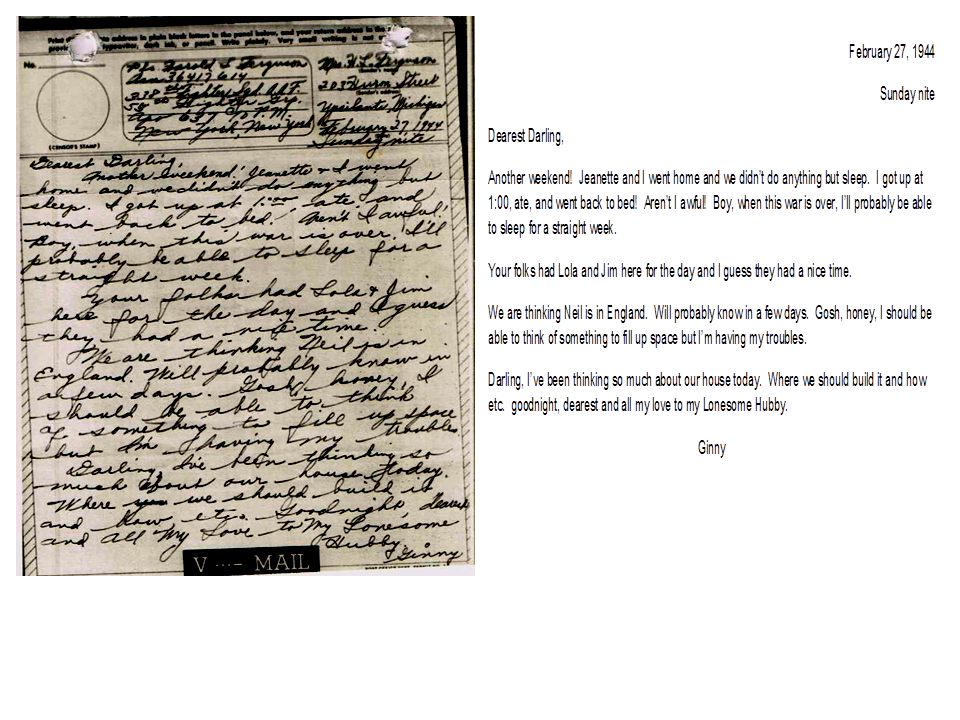 Print address in plain black letters in the panel below, and your return address in the
typewriter, dark ink, or pencil. Write plainly. Very small writing is not
No.
(CENSOR'S STAMP)
Pfc Harold L Ferguson
Asn 36417614
338th Fighter Sqd. A.A.F.
50th Fighter Grp.
Apo 637 % P.M.
New York, New York
Mrs. H.L. Ferguson
(Sender's name)
203 Huron Street
(Sender's address)
Ypsilanti, Michigan
February 27, 1944
Sunday nite
Dearest Darling,
Another weekend! Jeanette & I went
home and we didn't do anything but
sleep. I got up at 1:00 ate and
went back to bed! Aren't I awful!
Boy, when this war is over, I'll
probably be able to sleep for a
straight week.
Your folks had Lola & Jim
here for the day and I guess
they had a nice time.
We are thinking Neil is in
England. Will probably know in
a few days. Gosh, honey, I
should be able to think
of something to fill up space
but I'm having my troubles
Darling, I've been thinking so
much about our house today.
Where we should build it
and how, etc. Goodnight, dearest
and all my love to My Lonesome
Hubby.
Ginny
V ···– MAIL
February 27, 1944
Sunday nite
Dearest Darling,
Another weekend! Jeanette and I went home and we didn't do anything but sleep. I got up at
1:00, ate, and went back to bed! Aren't I awful! Boy, when this war is over, I'll probably be able
to sleep for a straight week.
Your folks had Lola and Jim here for the day and I guess they had a nice time.
We are thinking Neil is in England. Will probably know in a few days. Gosh, honey, I should be
able to think of something to fill up space but I'm having my troubles.
Darling, I've been thinking so much about our house today. Where we should build it and how
etc. goodnight, dearest and all my love to my Lonesome Hubby.
Ginny